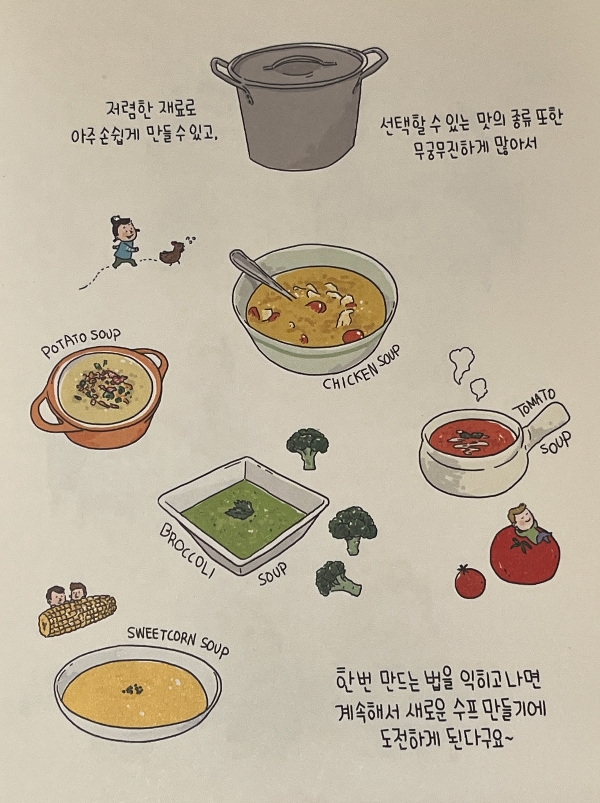 저렴한 재료로
아주 손쉽게 만들 수 있고,
선택할 수 있는 맛의 종류 또한
무궁무진하게 많아서
POTATO SOUP
CHICKEN SOUP
TOMATO
SOUP
BROCCOLI
SOUP
SWEETCORN SOUP
한번 만드는 법을 익히고 나면
계속해서 새로운 수프 만들기에
도전하게 된다구요~